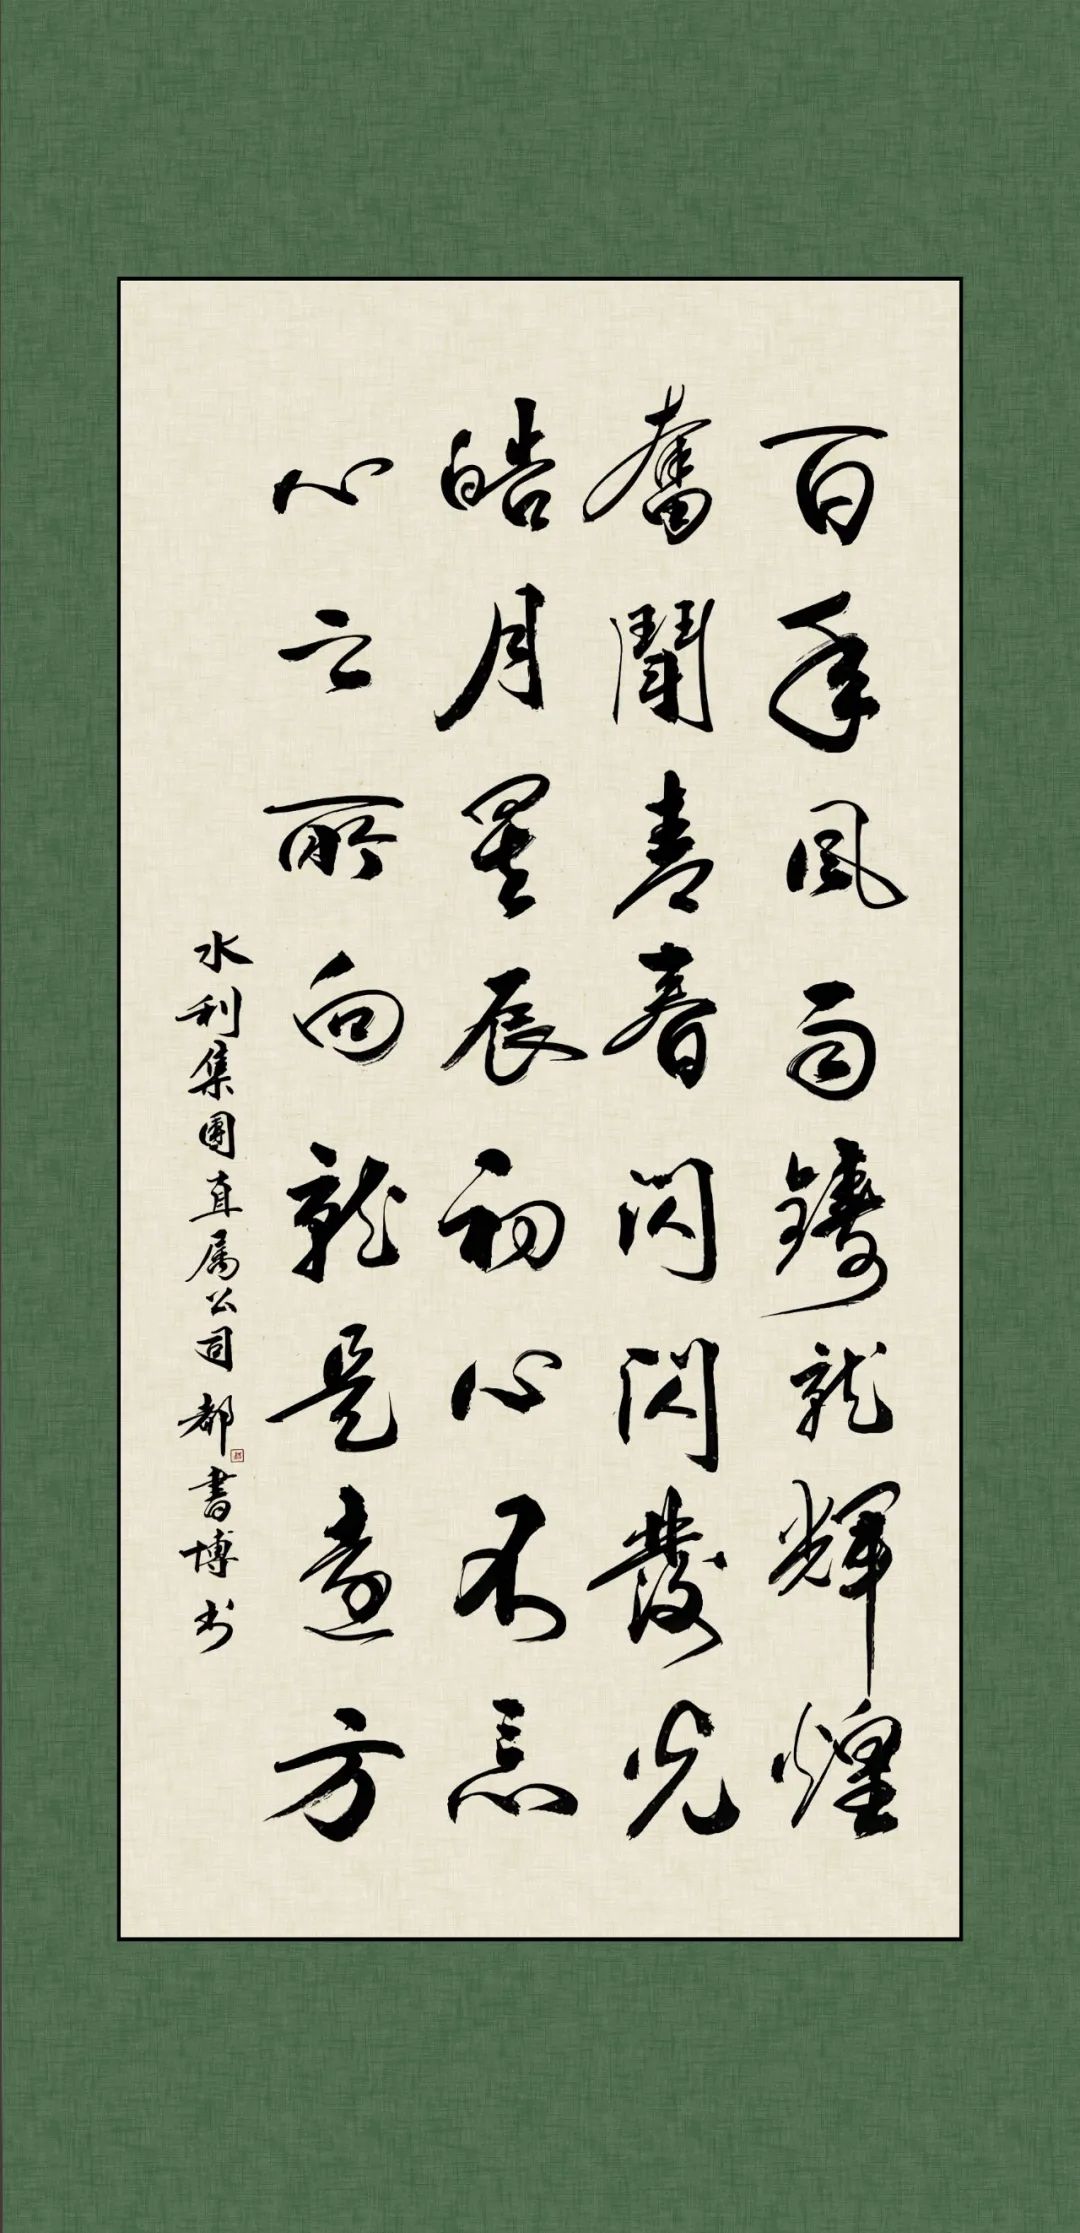 百年风雨鑄就輝煌
奮鬪青春閃閃發光
皓月星辰初心不忘
心之所向就是遠方
水利集團直属公司都書博书